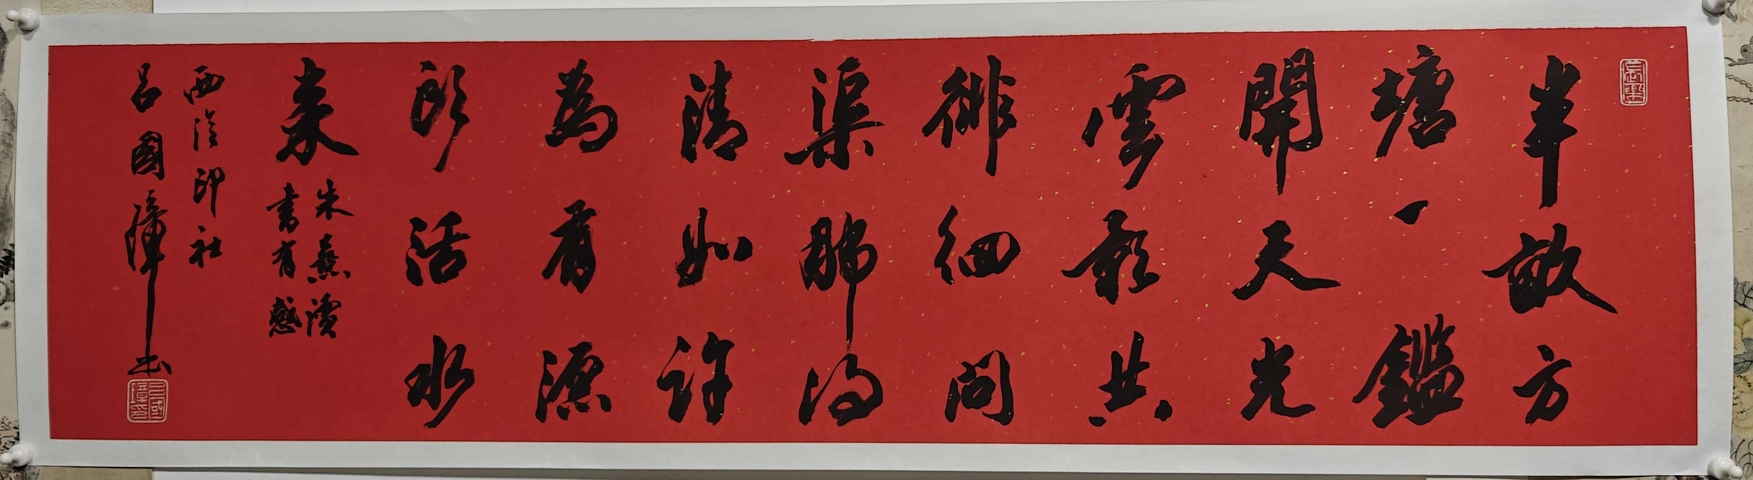 半畝方
塘一鑑
開天光
雲影共
徘徊問
渠那得
清如許
為有源
頭活水
來
朱熹讀
書有感
西泠印社
呂國璋書